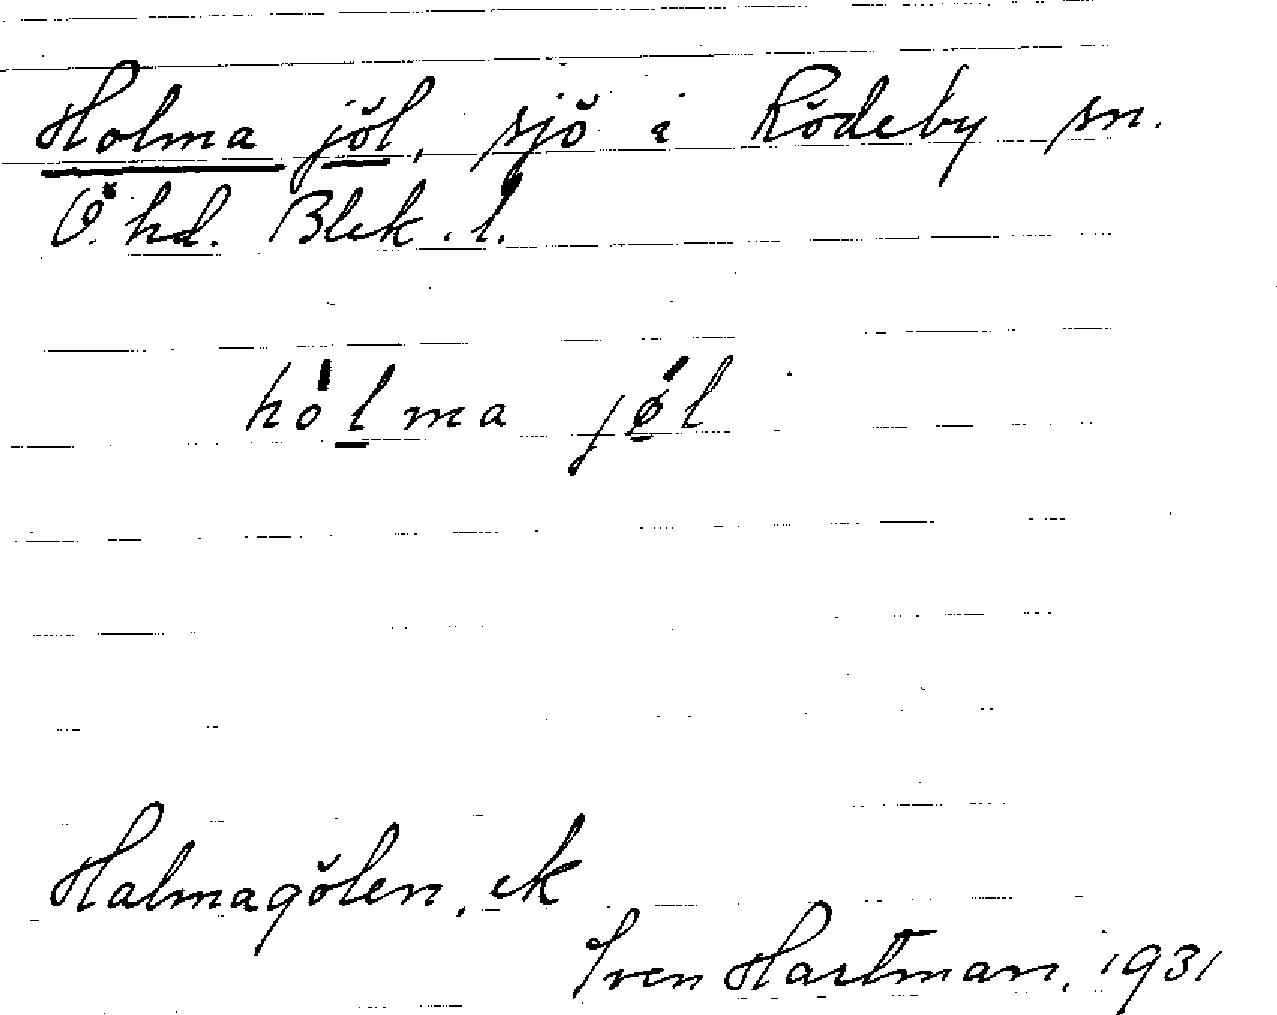 Holma jöl, sjö i Rödeby sn.
Ö. hd. Blek. l.
hòlma jǿl
Halmagölen, ek
Sven Hartman, 1931